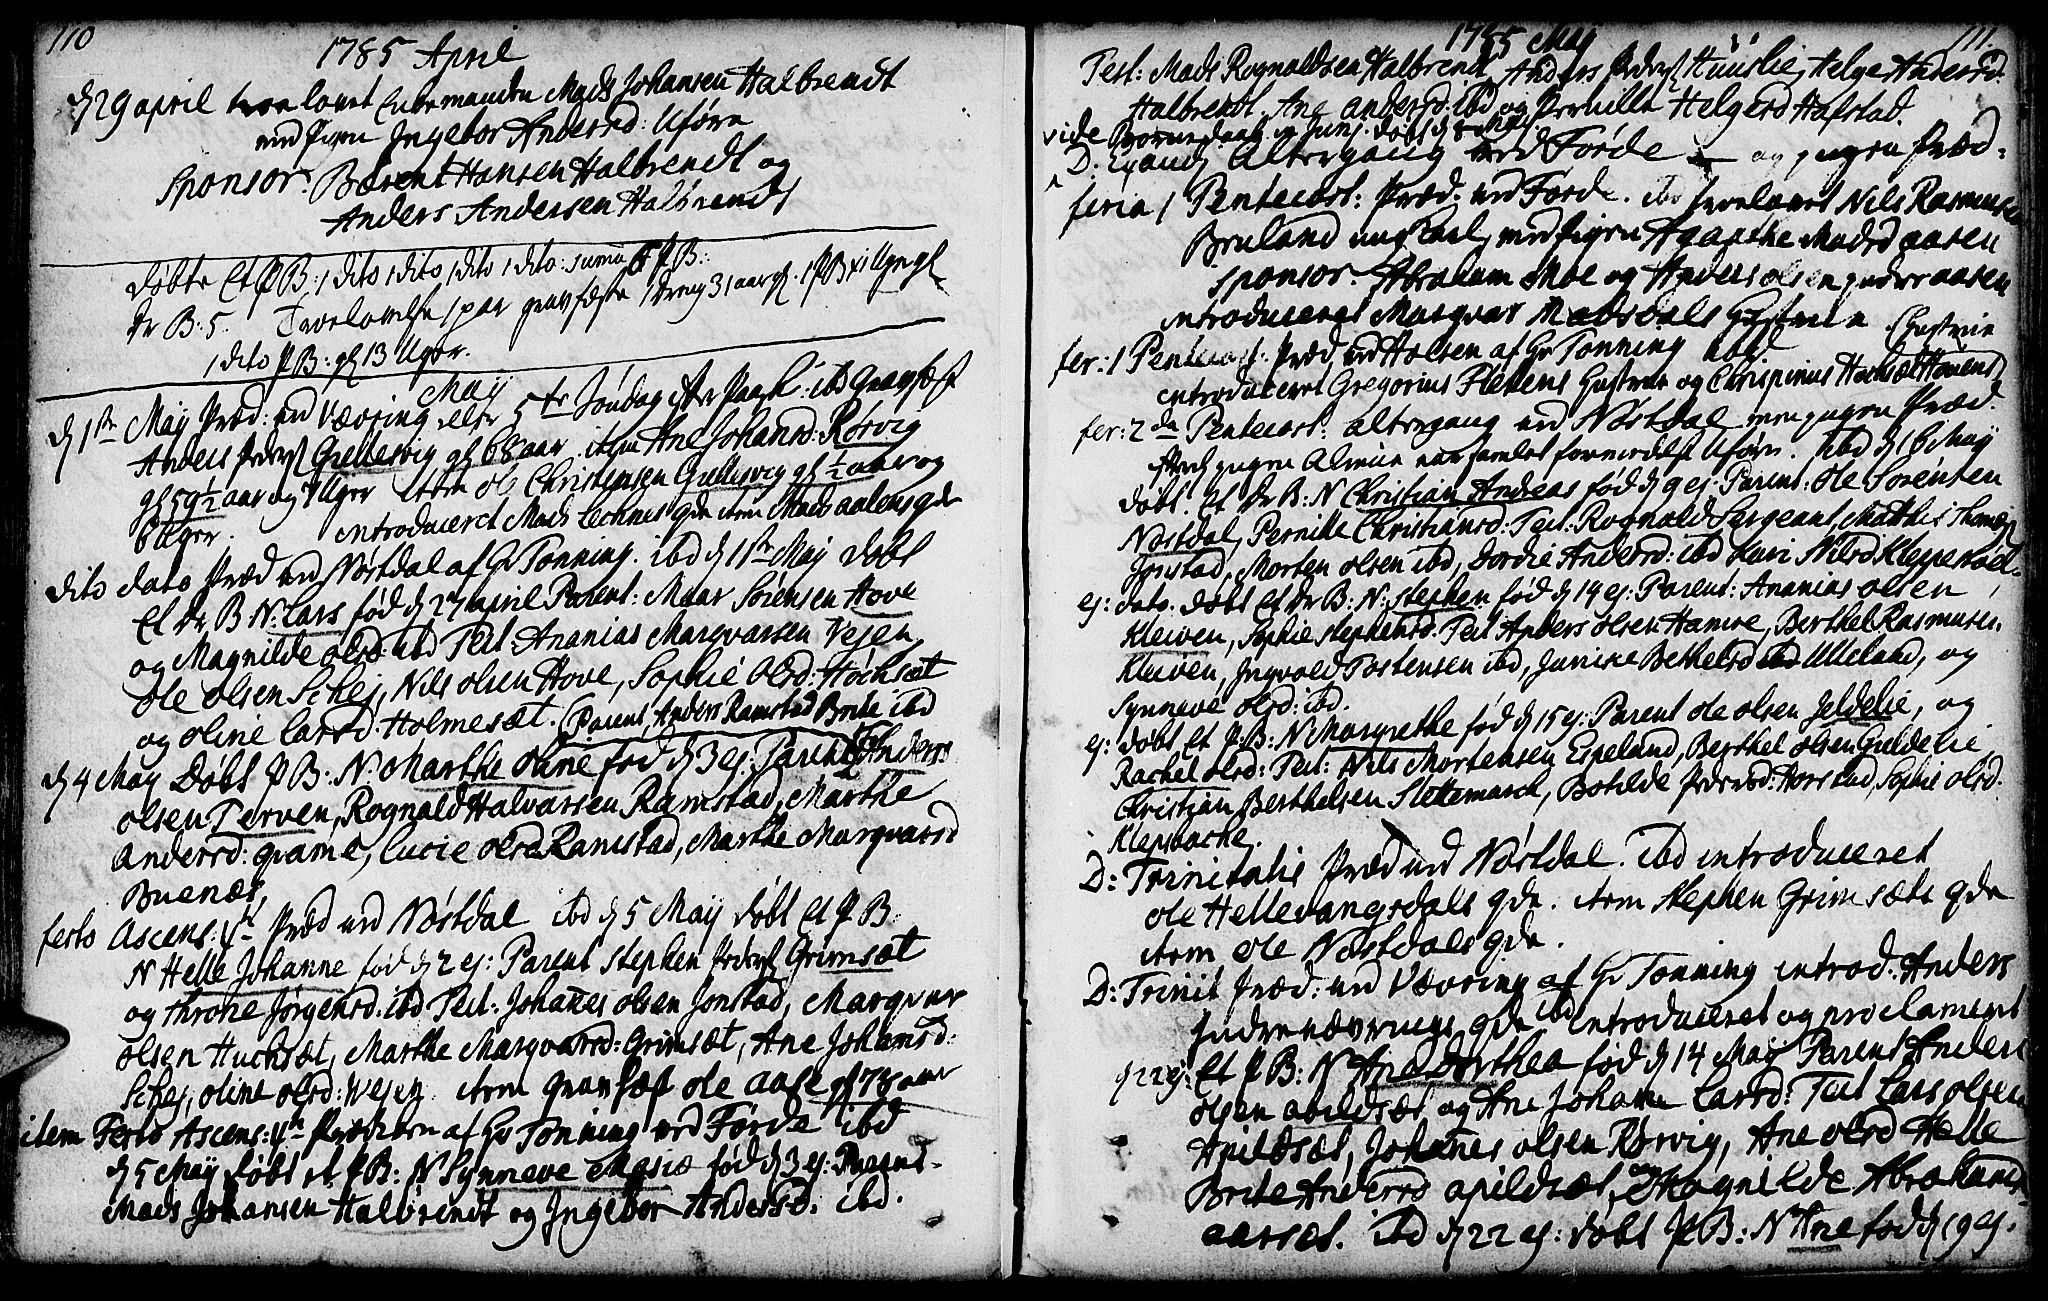 110
1785 April
d 29 april trolovet Enkemanden Mads Johansen Halbrendt
med Pigen Ingebor Andersd: Uføre
Sponsor. Bærent Hansen Halbrendt og
Anders Andersen Halbrendt
døbte Et P B: 1 dito 1 dito 1 dito 1 dito: summa 5 P B:
Dr B: 5. Trolovelse 1 par gravfæste 1 dreng 3 aar gl. 1 P B
1 dito P B: gl 13 Uger.
May
d 1ste May Præd: ved Vævring eller 5te Søndag efter Paask: ibd Gravfæst
Anders Peders: Grellesvig gl 68 aar item Ane Johansd: Rørvig
gl 59½ aar og 7 Uger item ole Christensen Grellesvig gl ½ aar og
6 Uger. introduceret Mads Lechnes qde item Mads aalens qde
dito dato Præd ved Nøstdal af Hr Tonning. ibd d 1ste May døbt
Et Dr B N: Lars fød d 27 april Parent: Maar Sørensen Hove
og Magnilde olsd: ibd Test: Ananias Marqvarsen Vejen,
ole olsen Schej, Nils olsen Hove, Sophie olsd: Høchsæt
og oline Larsd: Holmesæt. (Parent, Anders Ramstad Brite ibd
d 4 May Døbt P B: N: Marthe oline fød d 3 ej: Parent Test Anders
olsen Terven, Rognald Halvarsen Ramstad, Marthe
Andersd: qvame, Lucie olsd Ramstad, Marthe Marqvarsd
Buenæs,
festo Ascens: Præd ved Nøstdal ibd d 5 May døbt Et P B:
N Helle Johanne fød d 2 ej: Parent Stephen Peders: Grimsæt
og Throtie Jørgensd: ibd Test: Johanes olsen Jonstad, Marqvar
olsen Huchsæt, Marthe Marqvarsd: Grimsæt, Ane Johansd:
Schej, oline olsd: Vejen. item Gravfæst ole aase gl 78 aar
item Festo Ascens: Prædiken af Hr Tonning ved Førde ibd
d 5 May døbt et P B: N Synneve Maria fød d 3 ej: Parent.
Mads Johansen Halbrendt og Ingebor Andersd: ibd.
1785 May
111.
Test: Mads Rognaldsen Halbrendt, Anders Peders: Huuslie, Helge Andersd:
Halbrendt, Ane andersd: ibd og Pernille Helgesd Hafstad.
vide døbt d 8 May.
D. Exaudi Altergang ved Førde og ingen Præd:
feria 1 Pentecost: Præd: ved Førde. ibd trolovet Nils Rasmusen
Bruland ungkarl, med pigen Agathe Madsd aasen
Sponsor. Abraham Moe og Anders olsen indre aasen
introduceret Marqvar Mobsdals Hustrue
fer: 1 Pentecost: Præd ved Holsen af Hr Tonning ibid
introduceret Gregorius Flettens Hustrue og Chrispinus Hochsæt Hovens Hustrue
fer: 2da Pentecost: altergang ved Nøstdal men ingen Præd.
eftersom ingen Almue var samlet formedelst Uføre. ibd d 16 May
døbt. Et Dr B: N Christian Andreas fød d 9 ej: Parent: ole Sørensen
Nøstdal, Pernille Christiansd: Test: Rognald Sergeant, Matthis Thomes:
Jonstad, Morten olsen ibd, Dordie Andersd: ibd Kari Nilsd Kleppestøl.
ej: dato. døbt Et Dr B: N: Stephen fød d 14 ej: Parent: Ananias olsen
Kleiven, Sophie Stephensd: Test Anders olsen Hamre, Berthel Rasmusen
Kleiven, Ingvold Tostensen ibd, Jannike Bethelsd Ulleland, og
Synnevé olsd: ibd.
ej: døbt Et P: B: N Margrethe fød d 15 ej: Parent ole olsen Geldelie, og
Rachel olsd: Test: Nils Mortensen Espeland, Berthel olsen Geldelie,
Christian Berthelsen Slettemarck, Botilde Pedersd: Horstad, Sophie olsd.
Klepsbache.
D: Trinitatis Præd ved Nøstdal. ibd introduceret
ole Hellevangsdals qde. item Stephen Grimsæts qde
item ole Nøstdals qde.
D: Trinit Præd: ved Vævring af Hr Tonning introd: Anders
Indrevævrings qde ibd introduceret og proclameret
d 22 ej: Et P B: N Ane dorthea fød d 14 May Parent Anders
olsen apildsæt og Ane Johanne Larsd: Test Lars olsen
Apildsæt, Johanes olsen Rørvig, Ane olsd Helle
Brite Andersd apildsæt, og Magnilde Abrahamsd
aarsæt. ibd d 22 ej: døbt P B: N Ane fød d 19 ej: